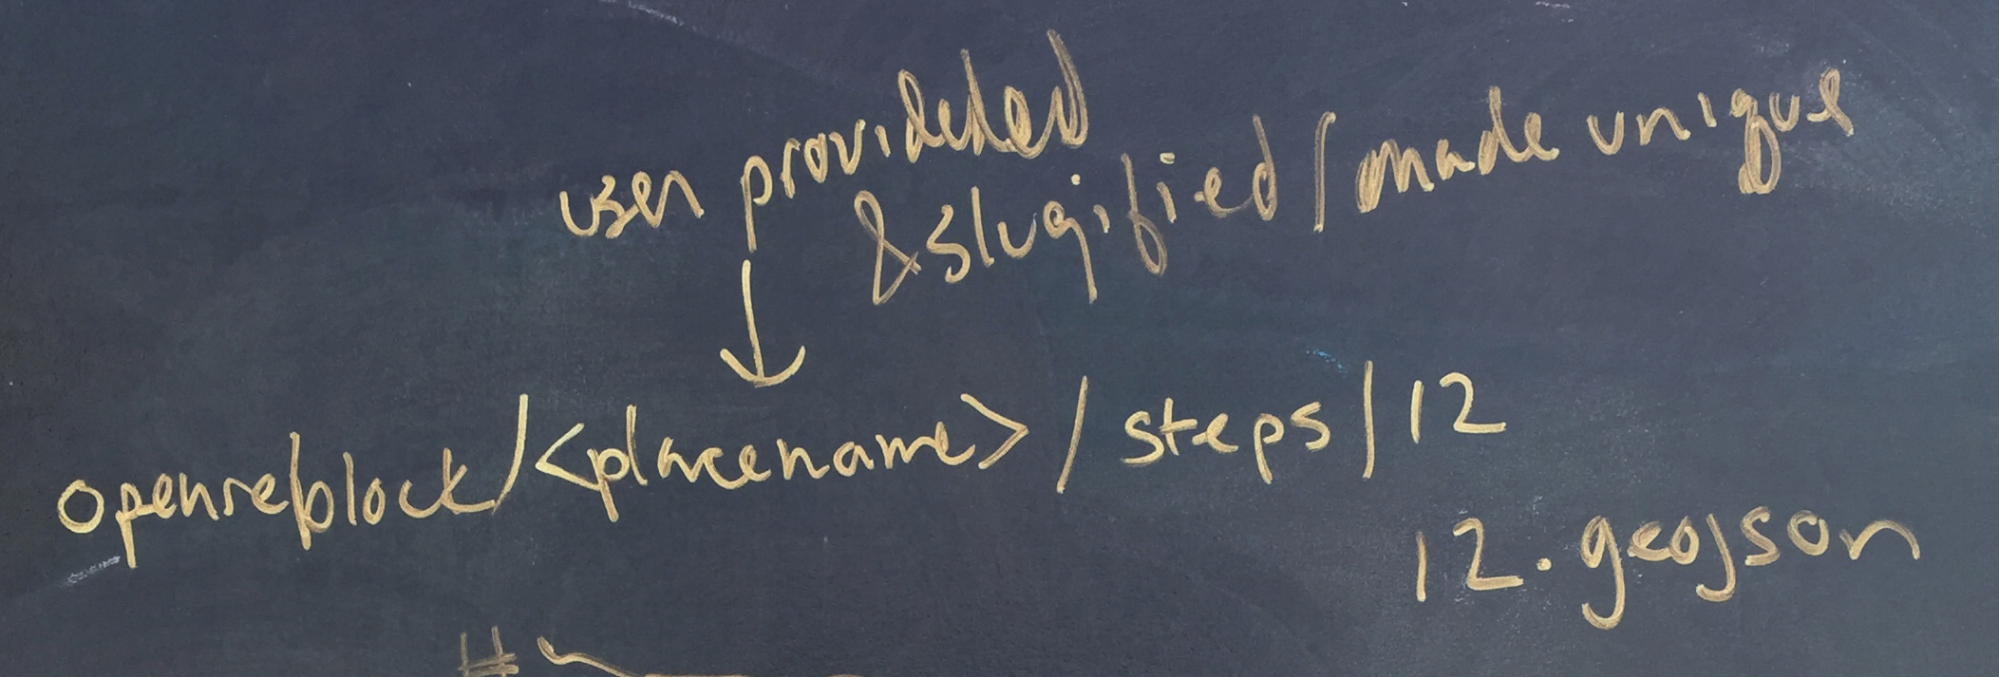 user provideded
& slugified / made unique
↓
openreblock/<placename>/steps/12
12.geojson
#